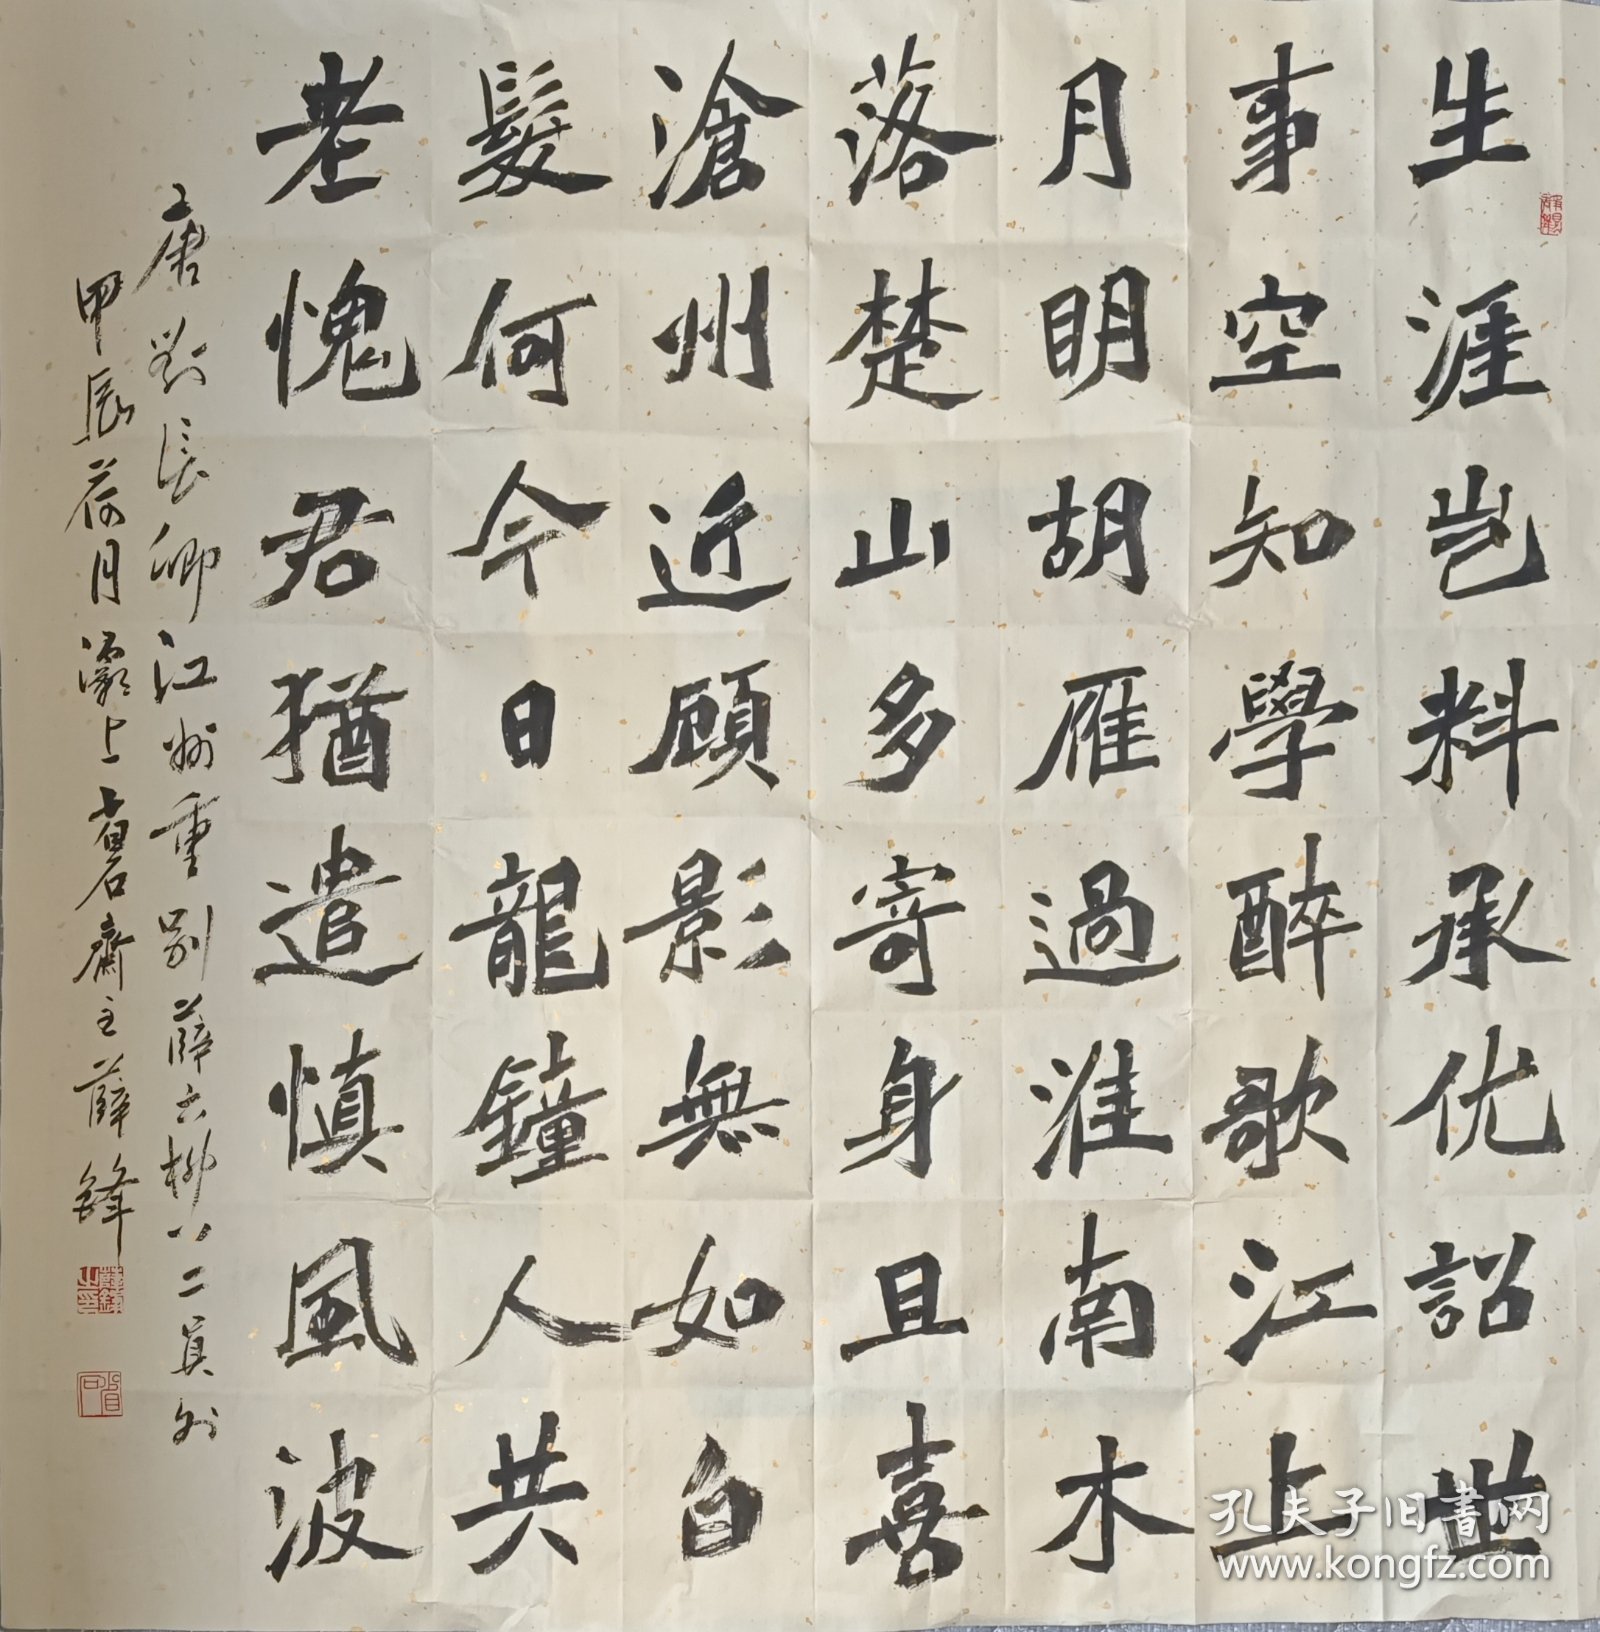 生涯岂料承优詔世
事空知學醉歌江上
月明胡雁過淮南木
落楚山多寄身且喜
滄州近顧影無如白
髮何今日龍鐘人共
老愧君猶遣慎風波
唐劉長卿江州重別薛六柳八二員外
甲辰荷月灞上齋主薛鋒
薛鋒之印
孔夫子旧書网
www.kongfz.com